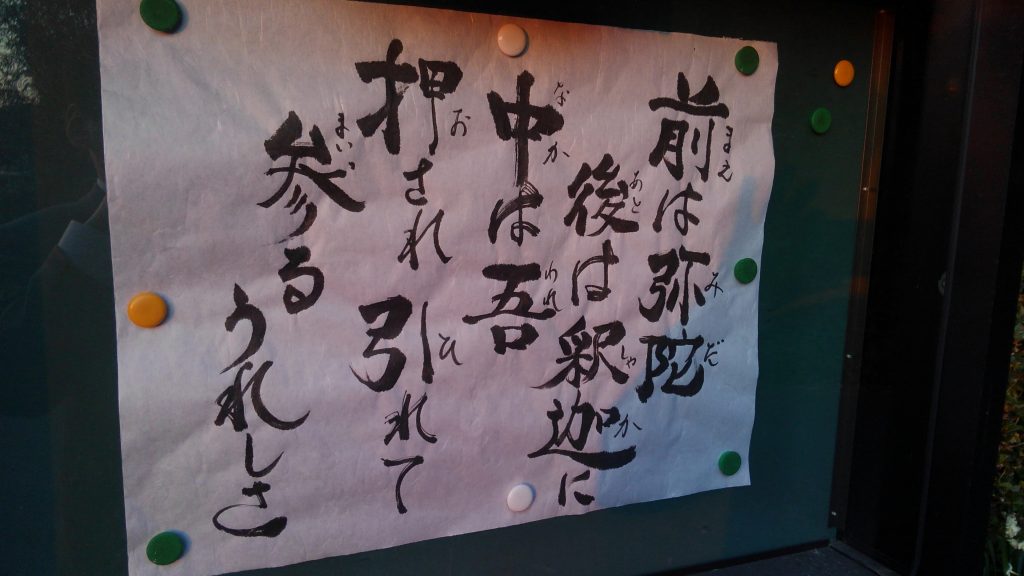 前は弥陀
後は釈迦に
中は吾
押され引れて
参る
うれしさ
まえ
みだ
あと
しゃか
なか
われ
お
ひ
まい